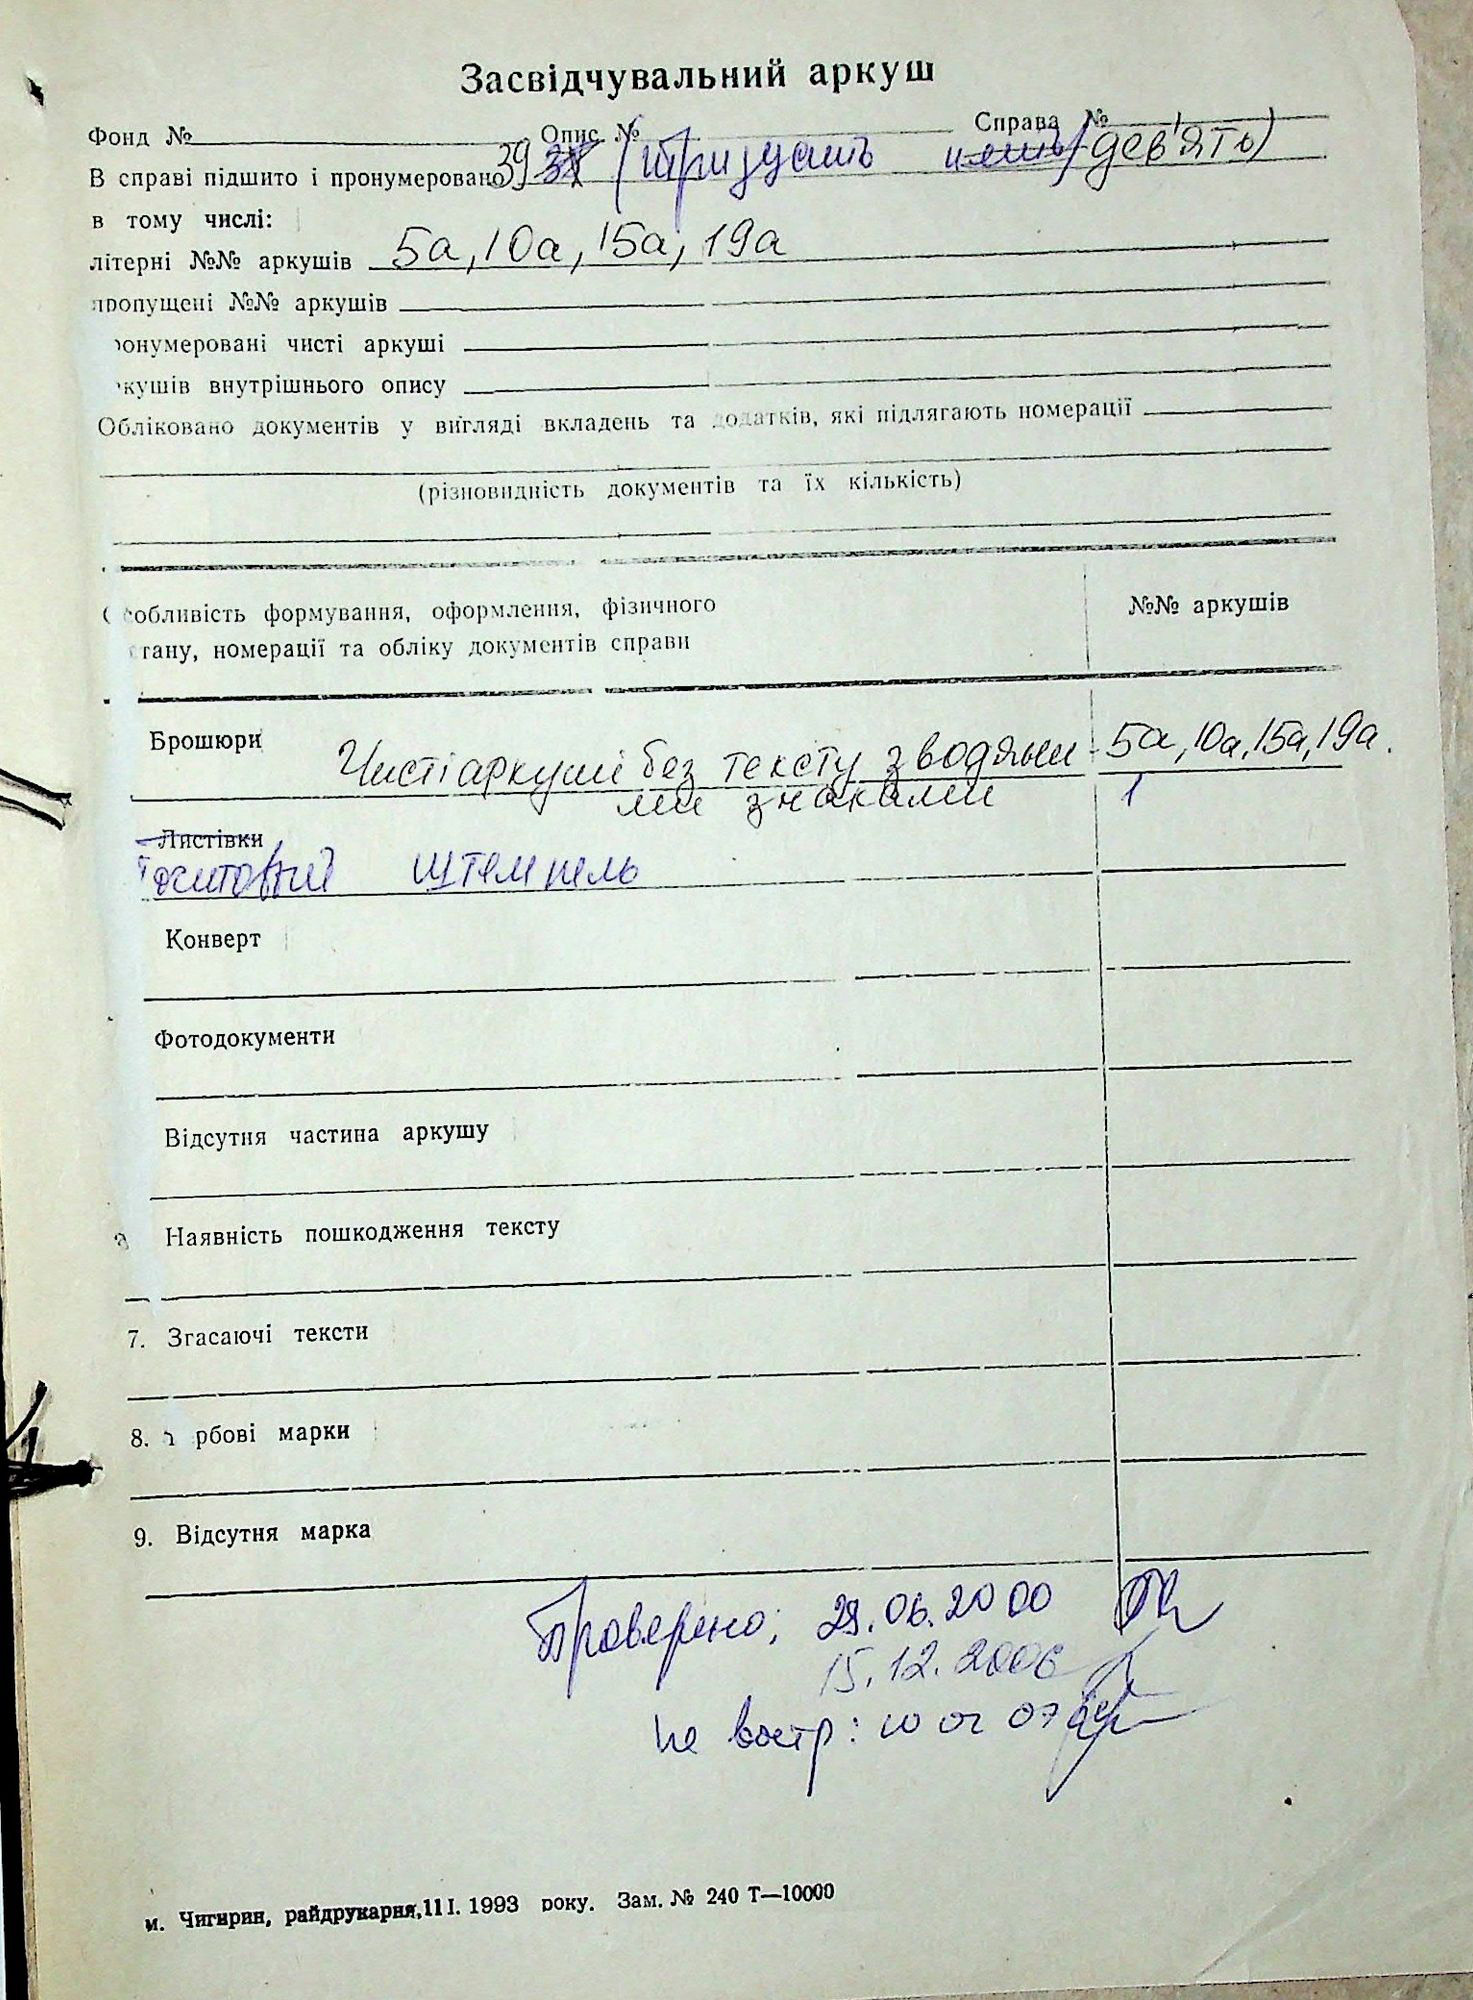 Засвідчувальний аркуш
Фонд № Опис № Справа №
В справі підшито і пронумеровано 39 (тридцять п'ять) дев'ять)
в тому числі:
літерні №№ аркушів 5а, 10а, 15а, 19а
пропущені №№ аркушів
ронумеровані чисті аркуші
кушів внутрішнього опису
Обліковано документів у вигляді вкладень та додатків, які підлягають номерації
(різновидність документів та їх кількість)
собливість формування, оформлення, фізичного
тану, номерації та обліку документів справи
№№ аркушів
Брошюри Чисті аркуші без тексту з водяни- 5а, 10а, 15а, 19а.
ми знаками 1
Листівки
штемпель
Конверт
Фотодокументи
Відсутня частина аркушу
Наявність пошкодження тексту
7. Згасаючі тексти
8. рбові марки
9. Відсутня марка
Проверено: 29.06.2000
15.12.2006
10 01 07
м. Чигирин, райдрукарня, 11 I. 1993 року. Зам. № 240 Т—10000